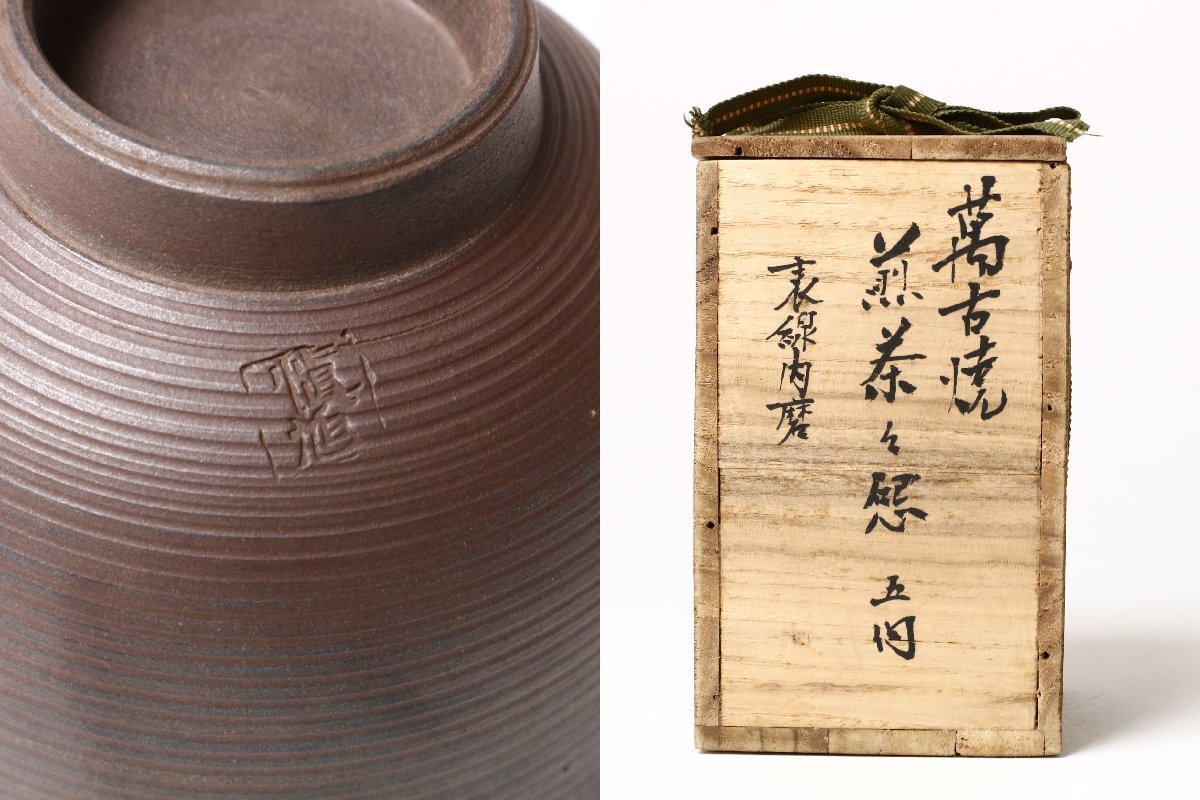 萬古焼
煎茶々 五個
表線内磨